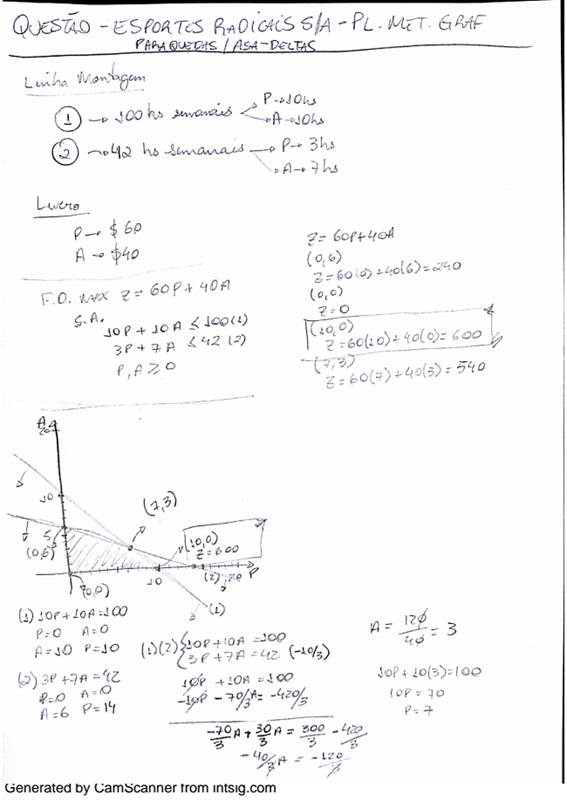 QUESTÃO - ESPORTES RADICAIS S/A - PL. MET. GRAF
PARAQUEDAS / ASA-DELTAS
Linha Montagem
1 → 100 hs semanais P → 10hs
A → 10hs
2 → 42 hs semanais P → 3hs
A → 7hs
Lucro
P → $60
A → $40
F.O. MAX Z = 60P + 40A
S.A.
10P + 10A ≤ 100 (1)
3P + 7A ≤ 42 (2)
P, A ≥ 0
Z = 60P + 40A
(0,6)
Z = 60(0) + 40(6) = 240
(0,0)
Z = 0
(10,0)
Z = 60(10) + 40(0) = 600
(7,3)
Z = 60(7) + 40(3) = 540
A
20
10
(7,3)
5
(0,6)
(10,0)
Z = 600
(0,0)
10
(2)
20
P
(1)
(1) 10P + 10A = 100
P=0 A=0
A=10 P=10
(2) 3P + 7A = 42
P=0 A=0
A=6 P=14
(1)(2) { 10P + 10A = 100
3P + 7A = 42 (-10/3)
10P + 10A = 100
-10P - 70/3A = -420/3
-70/3 A + 30/3 A = 300/3 - 420/3
-40/3 A = -120/3
A = 120/40 = 3
10P + 10(3) = 100
10P = 70
P = 7
Generated by CamScanner from intsig.com